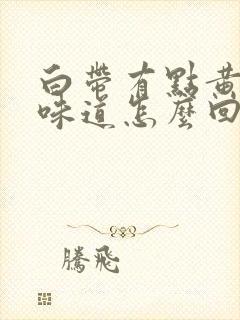 白帶有點黃
味道怎麼回
騰飛